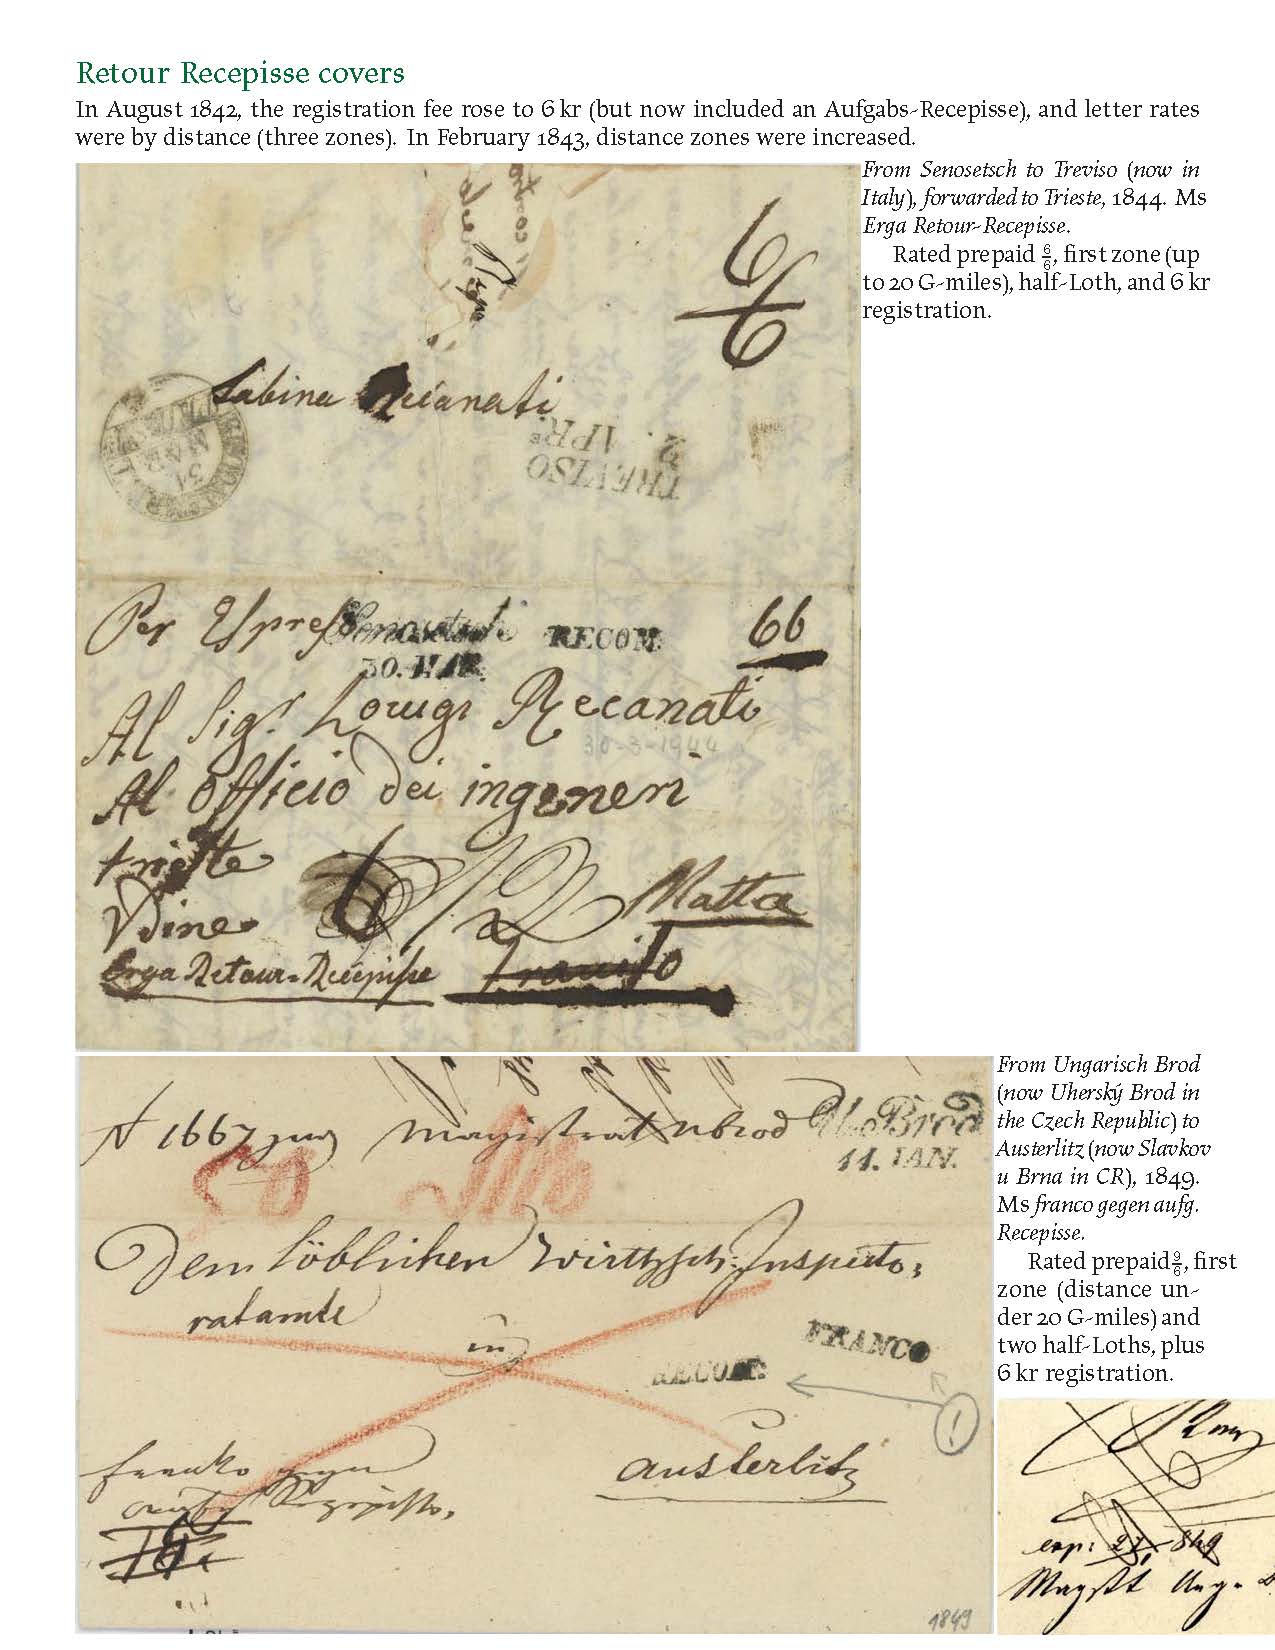 Retour Recepisse covers
In August 1842, the registration fee rose to 6 kr (but now included an Aufgabs-Recepisse), and letter rates
were by distance (three zones). In February 1843, distance zones were increased.
From Senosetsch to Treviso (now in
Italy), forwarded to Trieste, 1844. Ms
Erga Retour-Recepisse.
Rated prepaid 6/6, first zone (up
to 20 G-miles), half-Loth, and 6 kr
registration.
6/6
Sabina Recanati
TREVISO
2. APR.
31
MAR
Per Espresso
Senosetsch
30. MAR.
RECOM.
66
Al Sigr Louigi Recanati
30-3-1944
Al officio dei ingeneri
trieste
Udine
Matta
Erga Retour-Recepisse
From Ungarisch Brod
(now Uherský Brod in
the Czech Republic) to
Austerlitz (now Slavkov
u Brna in CR), 1849.
Ms franco gegen aufg.
Recepisse.
Rated prepaid 9/6, first
zone (distance un-
der 20 G-miles) and
two half-Loths, plus
6 kr registration.
N 1667 Magistrat Ubrod
U. Brod
11. IAN.
Dem löblichen Wirthsch: Inspecto,
ratamte
in
FRANCO
RECOM.
!
franko gegen
Austerlitz
1849
exp: 849
Magstt Ung.